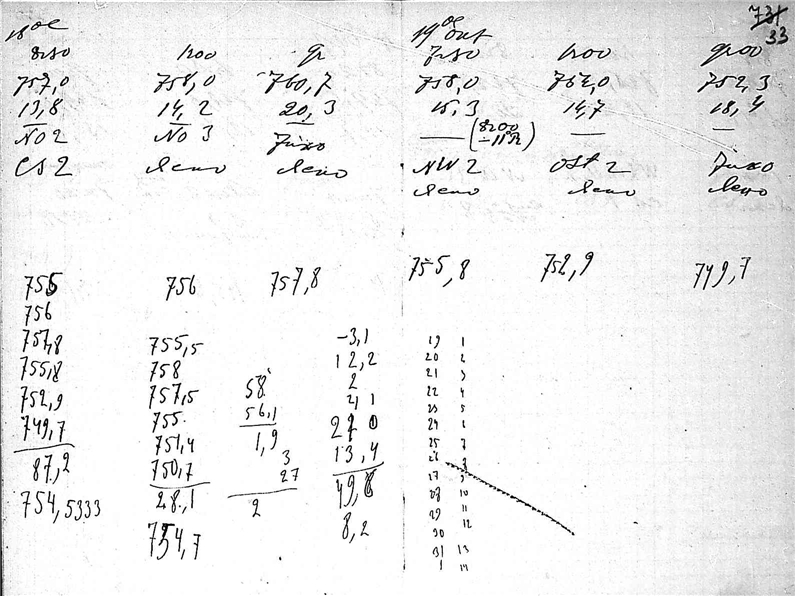 731
33
18ое
19ое Окт
757,0 758,0 760,7
13,8 14,2 20,3
NO2 NO3 Тихо
CS2 Ясно Ясно
758,0 754,0 752,3
15,3 14,7 18,4
— (8r00 —11°R) — —
NW2 OSt2 Тихо
Ясно Ясно Ясно
755 756 757,8
755,8 752,9 749,7
756
757,8
755,8
752,9
749,7
87,2
754,5333
755,5
758
757,5
755.
751,4
750,7
28,1
754,7
58.
56,1
1,9
3
27
2
-3,1
12,2
2
13,4
49,8
8,2
19 1
20 2
21 3
22 4
23 5
24 6
25 7
26 8
27 9
28 10
29 11
30 12
31 13
1 14